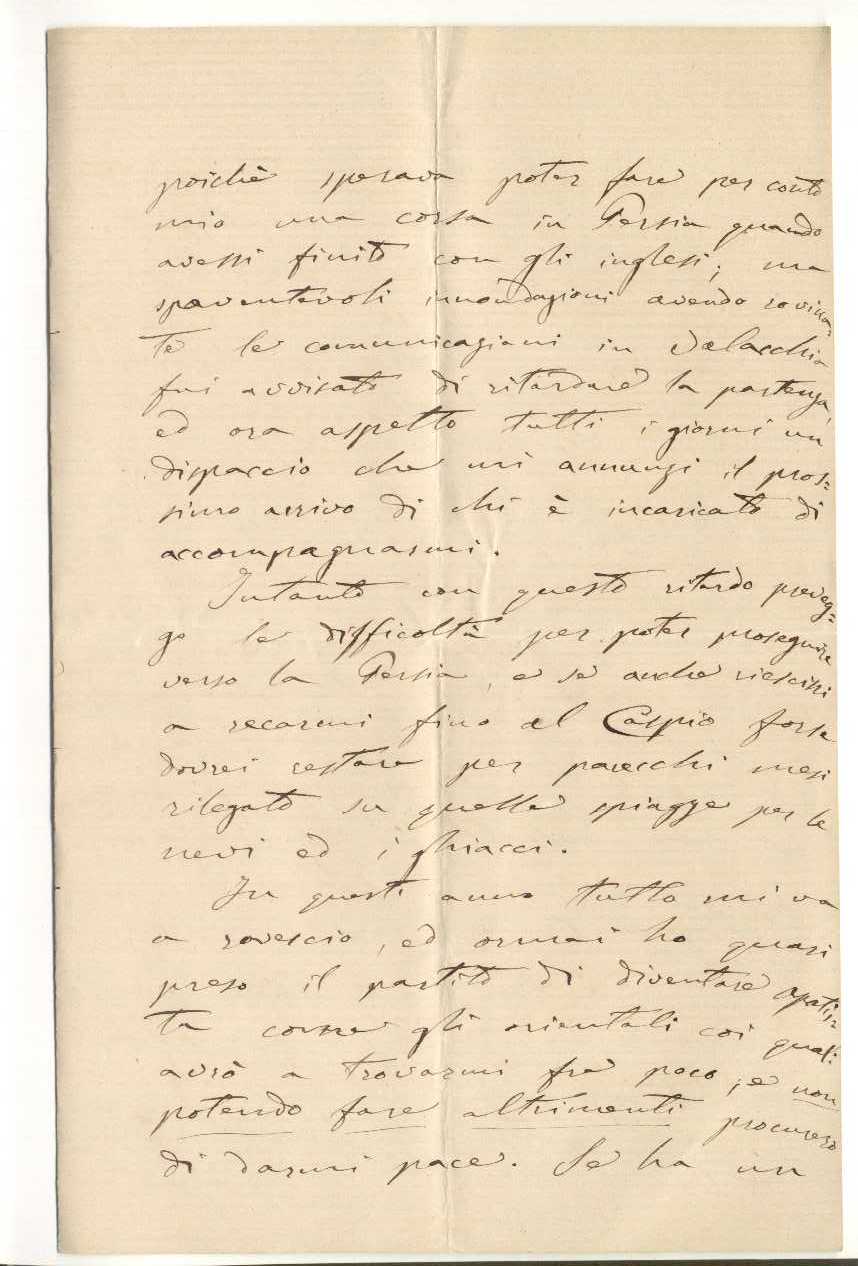 poichè sperava poter fare per conto
mio una corsa in Persia quando
avessi finito con gli inglesi; ma
spaventevoli innondazioni avendo rovina=
te le comunicazioni in Valacchia
fui avvisato di ritardare la partenza,
ed ora aspetto tutti i giorni un
dispaccio che mi annunzi il pros=
simo arrivo di chi è incaricato di
accompagnarmi.
Intanto con questo ritardo preveg=
go le difficoltà per poter proseguire
verso la Persia, e se anche riescissi
a recarmi fino al Caspio forse
dovrei restare per parecchi mesi
rilegato su quelle spiagge per le
nevi ed i ghiacci.
In questi anno tutto mi va
a rovescio, ed ormai ho quasi
preso il partito di diventare apatis=
ta come gli orientali coi quali
avrò a trovarmi fra poco; e non
potendo fare altrimenti procurerò
di darmi pace. Se ha un